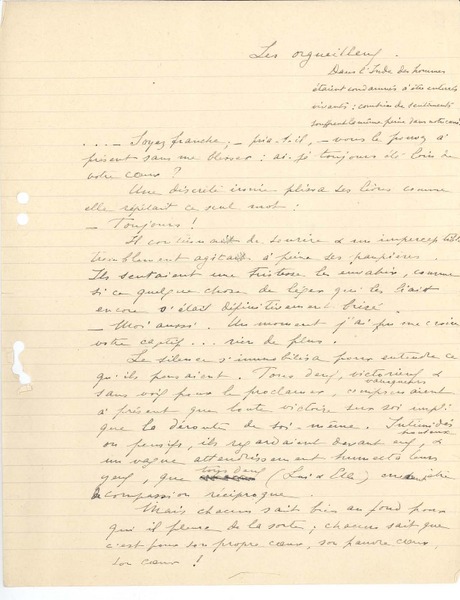 Les orgueilleux.
Dans l'Inde des hommes
étaient condamnés à être enterrés
vivants : combien de sentiments
souffrent la même peine dans notre cœur
... — Soyez franche, — pria-t-il, — vous le pouvez à
présent sans me blesser : ai-je toujours été loin de
votre cœur ?
Une discrète ironie plissa ses lèvres comme
elle répétait ce seul mot :
— Toujours !
Il continuait de sourire & un impercep tible
tremblement agitait à peine ses paupières.
Ils sentaient une tristesse les envahir, comme
si ce quelque chose de léger qui les liait
encore s'était définitivement brisé.
— Moi aussi. Un moment j'ai pu me croire
votre captif... rien de plus.
Le silence s'immobilisa pour entendre ce
qu'ils pensaient. Tous deux, victorieux &
vainqueurs
sans voix pour le proclamer, comprenaient
à présent que toute victoire sur soi implique
que la déroute de soi-même. Intimidés
ou pensifs, ils regardaient devant eux, &
un vague attendrissement humecta leurs
yeux, que tous deux (Lui & Elle) crurent être
compassion réciproque.
Mais chacun sait bien au fond pour
qui il pleure de la sorte ; chacun sait que
c'est pour son propre cœur, son pauvre cœur,
son cœur !